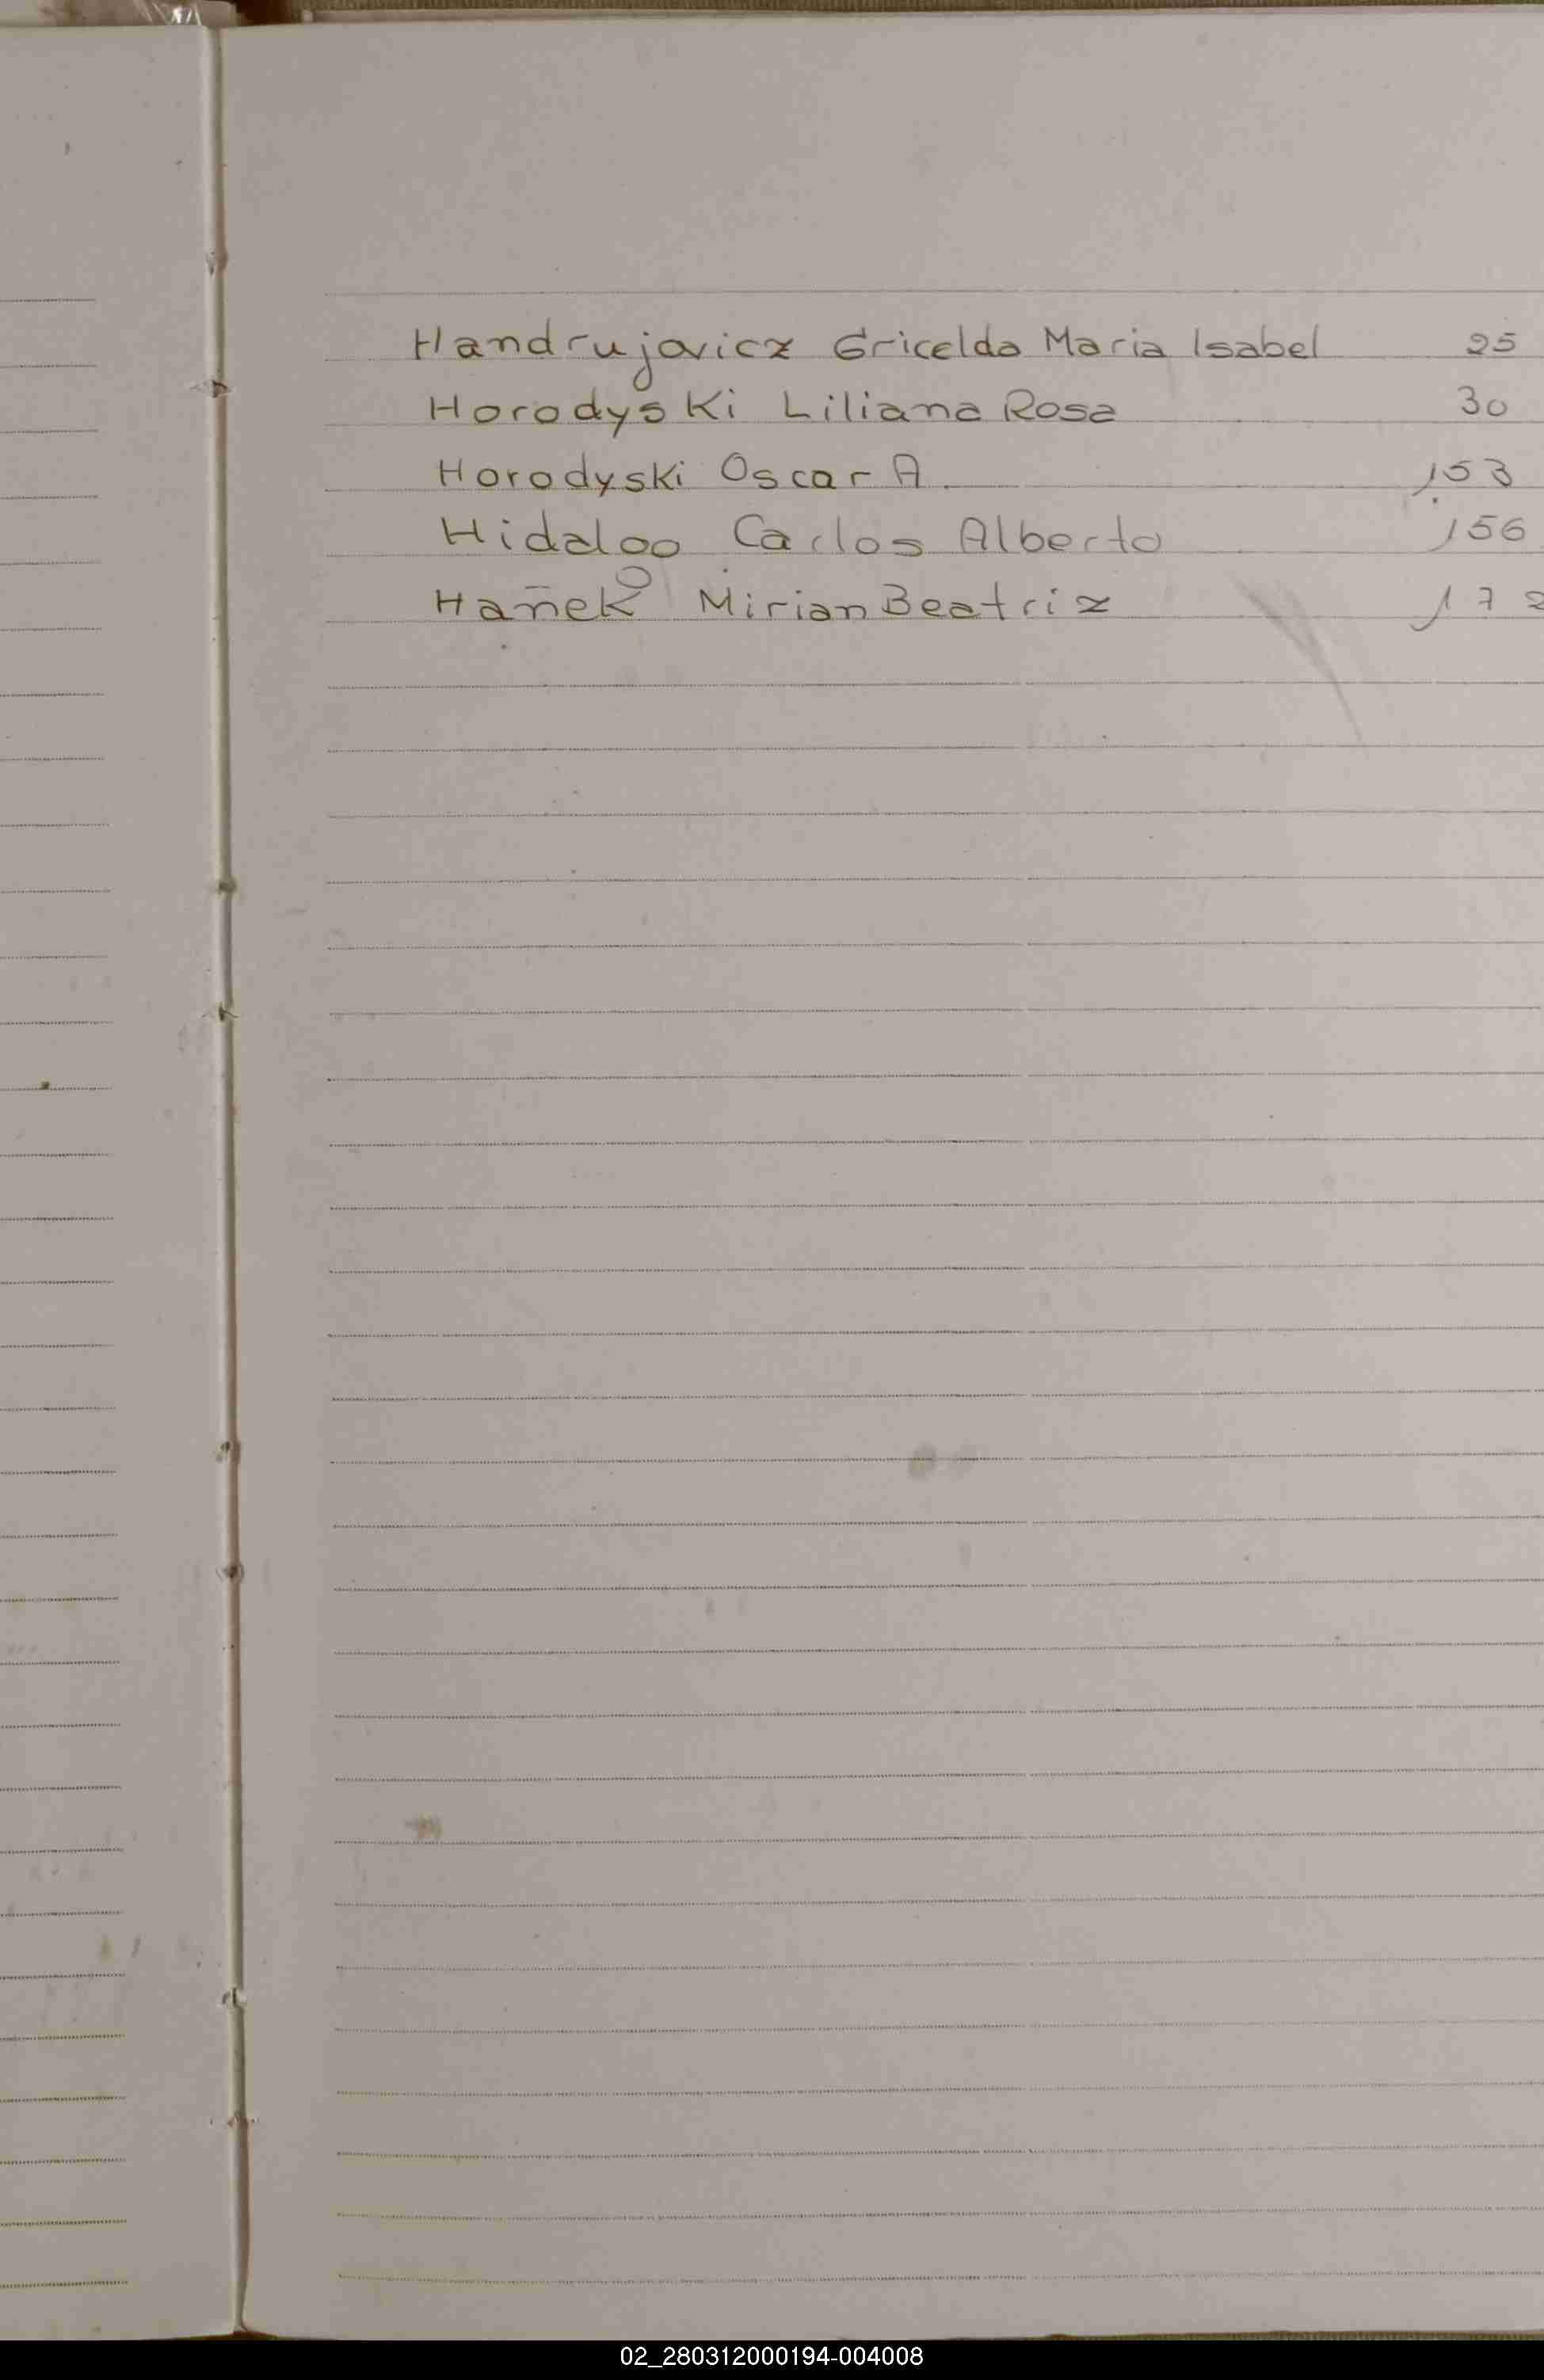 Handrujovicz Gricelda Maria Isabel 25
Horodyski Liliana Rosa 30
Horodyski Oscar A. 153
Hidalgo Carlos Alberto 156
Hañek Mirian Beatriz 172
02_280312000194-004008